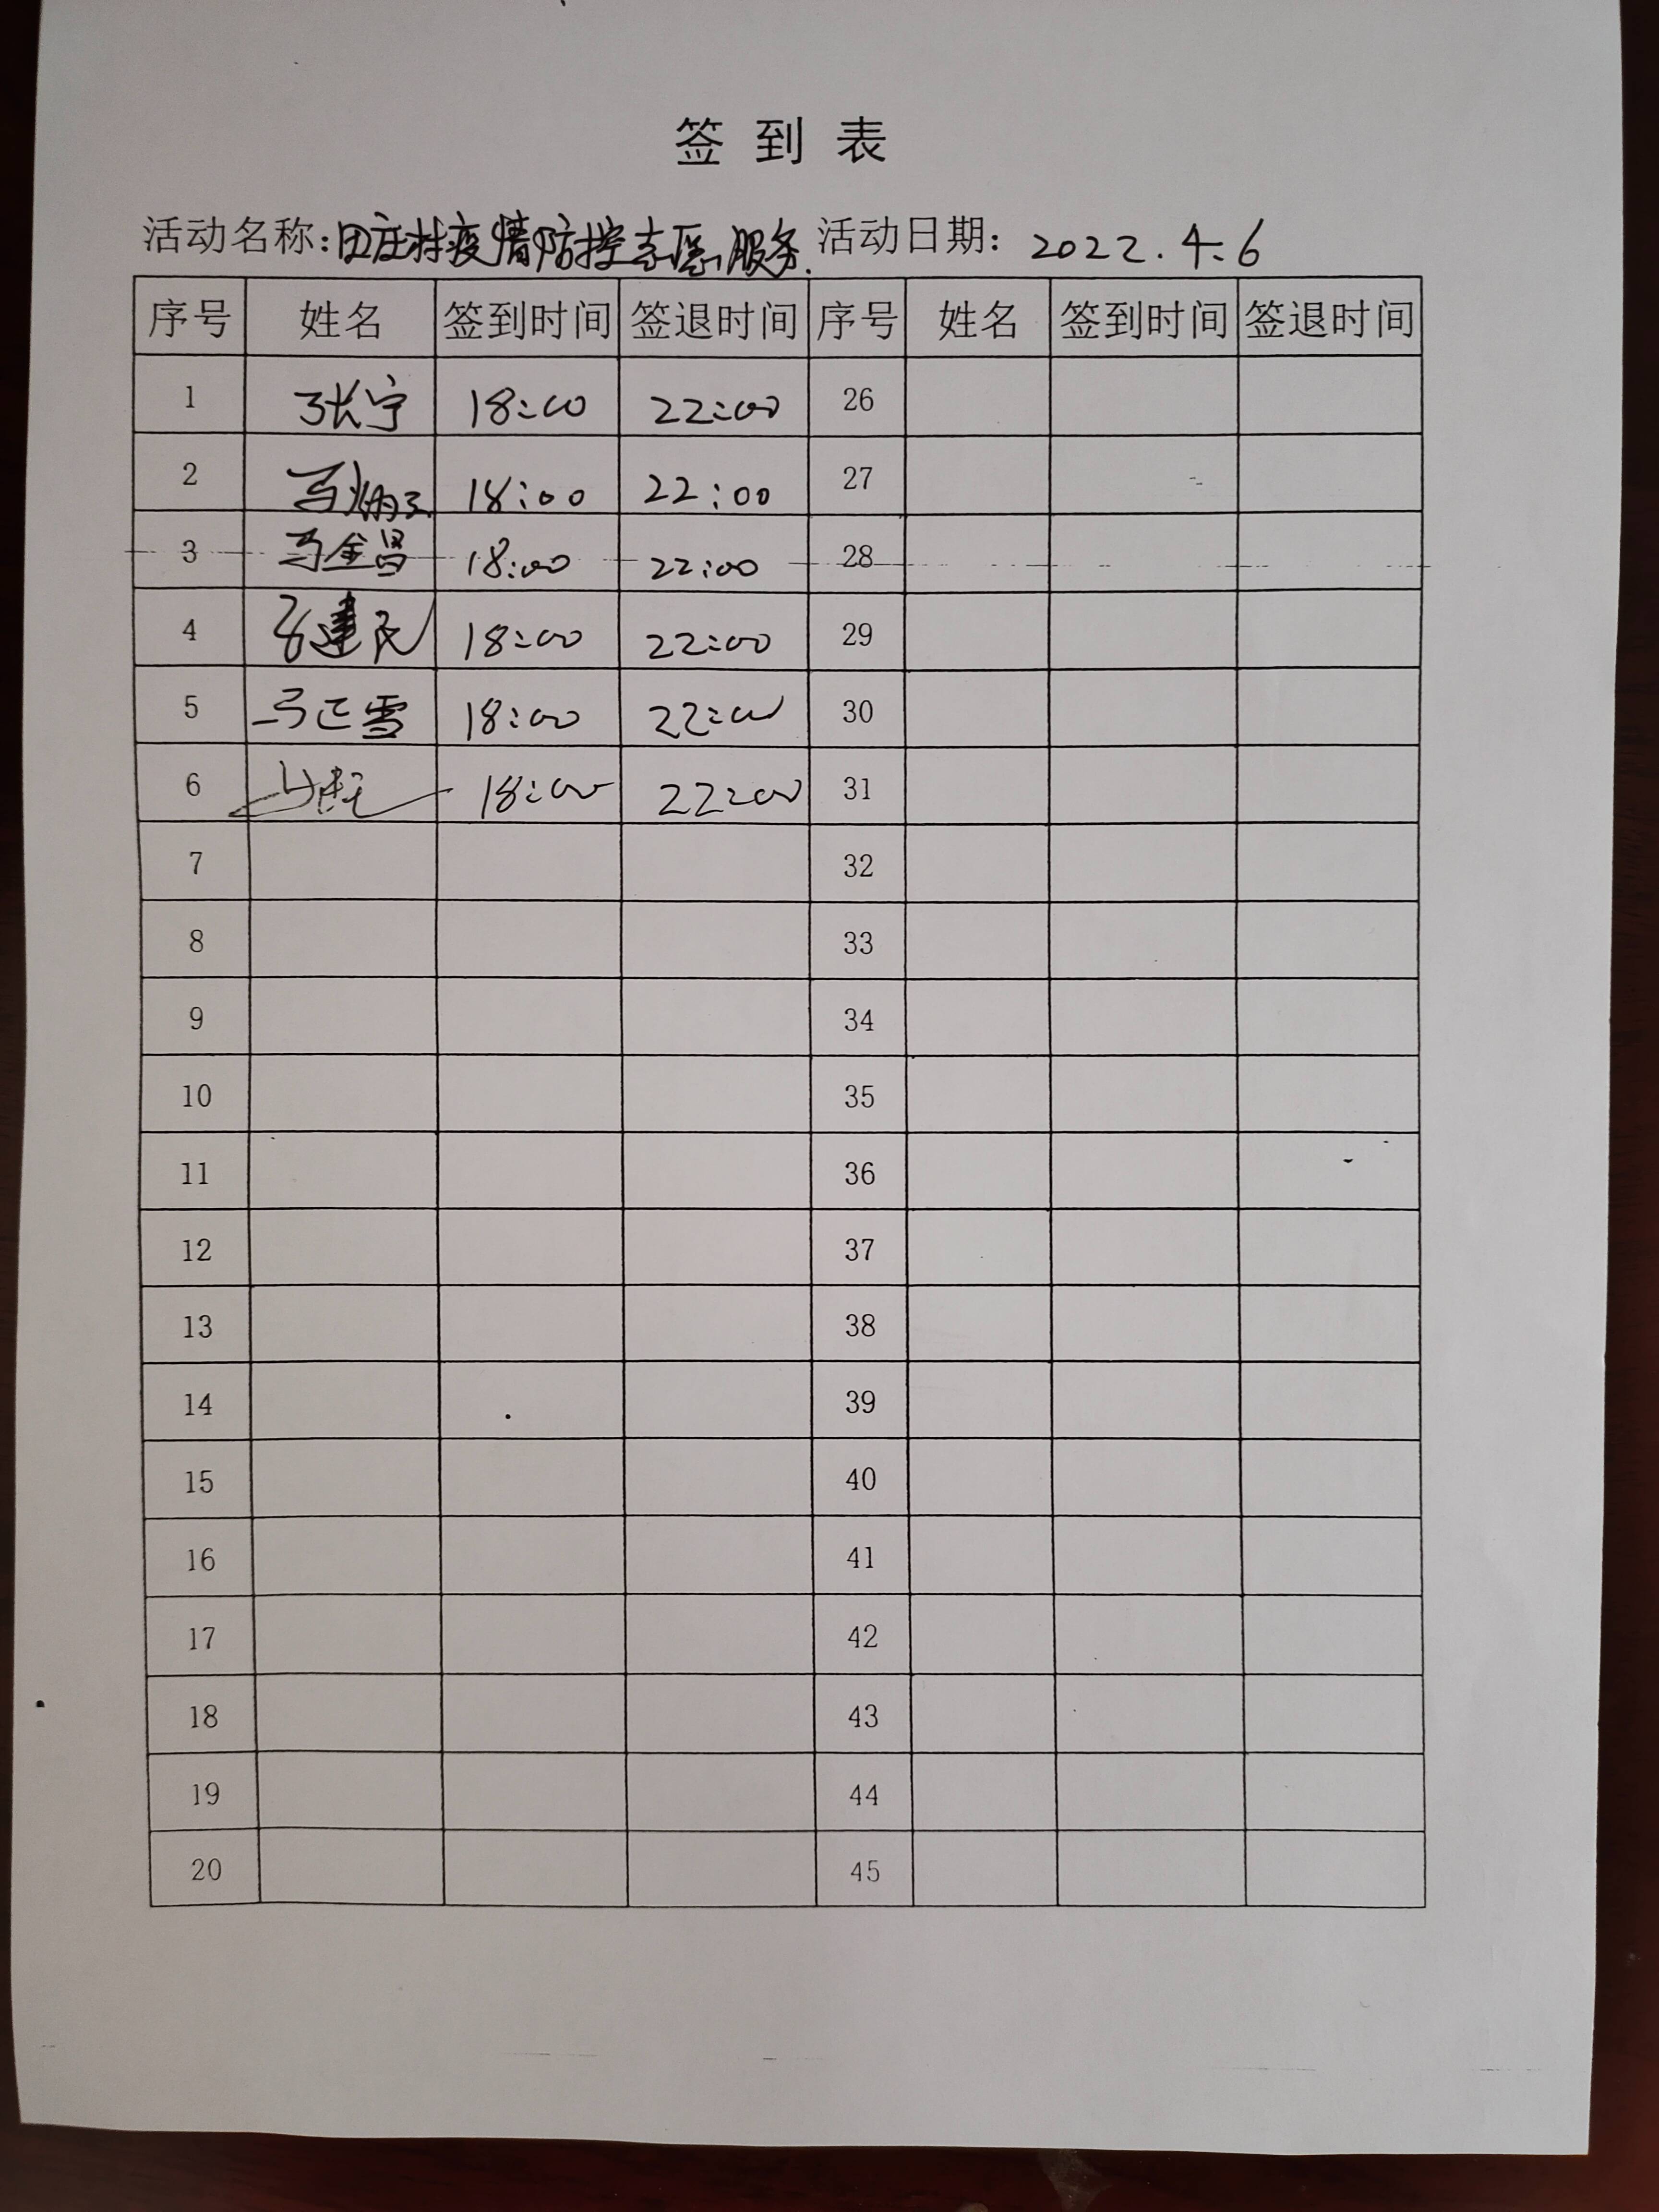 签到表
活动名称:田庄村疫情防控志愿服务. 活动日期: 2022.4.6
序号 姓名 签到时间 签退时间 序号 姓名 签到时间 签退时间
1 张宁 18:00 22:00 26
2 马炳 18:00 22:00 27
3 马金昌 18:00 22:00 28
4 建民 18:00 22:00 29
5 马正雪 18:00 22:00 30
6 18:00 22:00 31
7 32
8 33
9 34
10 35
11 36
12 37
13 38
14 39
15 40
16 41
17 42
18 43
19 44
20 45